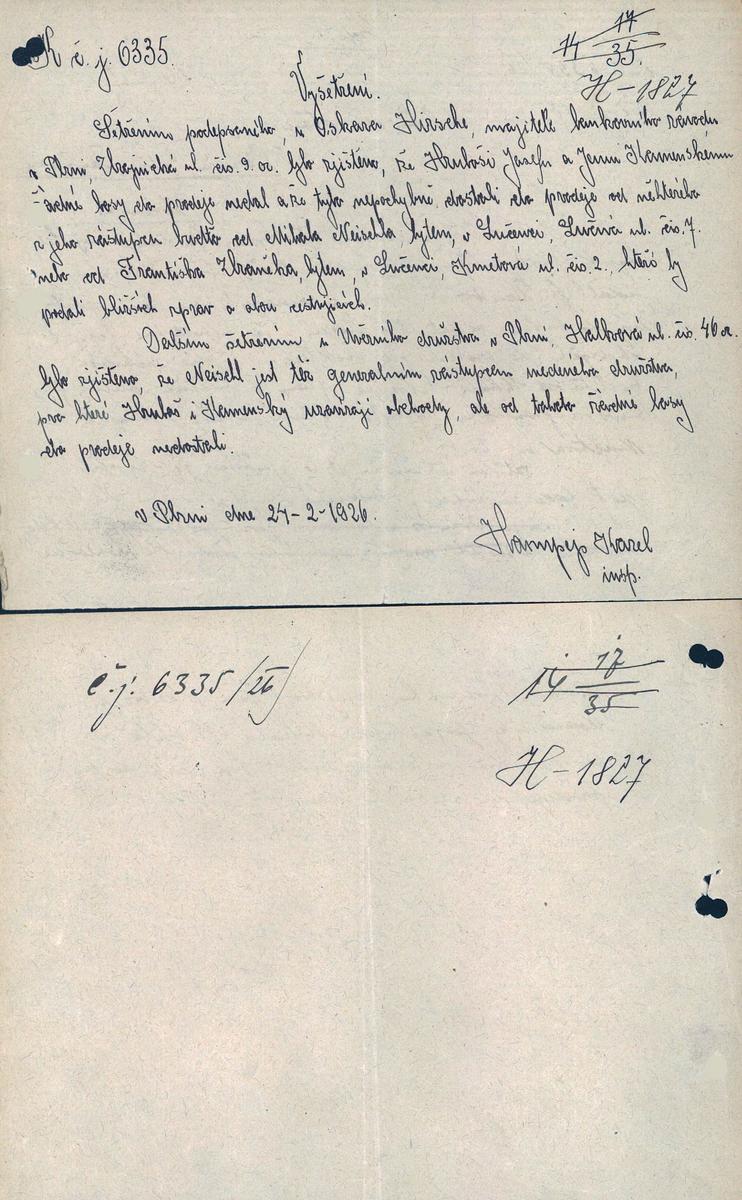 K č. j. 6335.
14 17/35.
H-1827
Vyšetření.
Šetřením podepsaného, u Oskara Hirsche, majitele bankovního závodu
v Plzni, Zbrojnická ul. čís. 9. oc. bylo zjištěno, že Hruboši Josefu a Janu Kamenskému
žádné losy do prodeje nedal a že tyto nepochybně dostali do prodeje od některého
z jeho zástupců buďto od Mihala Neischla, bytem, v Lučenci, Lučivá ul. čís. 7.
nebo od Františka Zbraněka, bytem, v Lučenci, Kmetová ul. čís. 2., kteří by
podali bližších zpráv o obou cestujících.
Dalším šetřením u Úvěrního družstva v Plzni, Halkova ul. čís. 46 oc.
bylo zjištěno, že Neischl jest též generalním zástupcem uvedeného družstva,
pro které Hruboš i Kamenský uzavírají obchody, ale od tohoto žádné losy
do prodeje nedostali.
v Plzni dne 24-2-1926.
Karel
insp.
č. j. 6335/26
14 17/35
H-1827